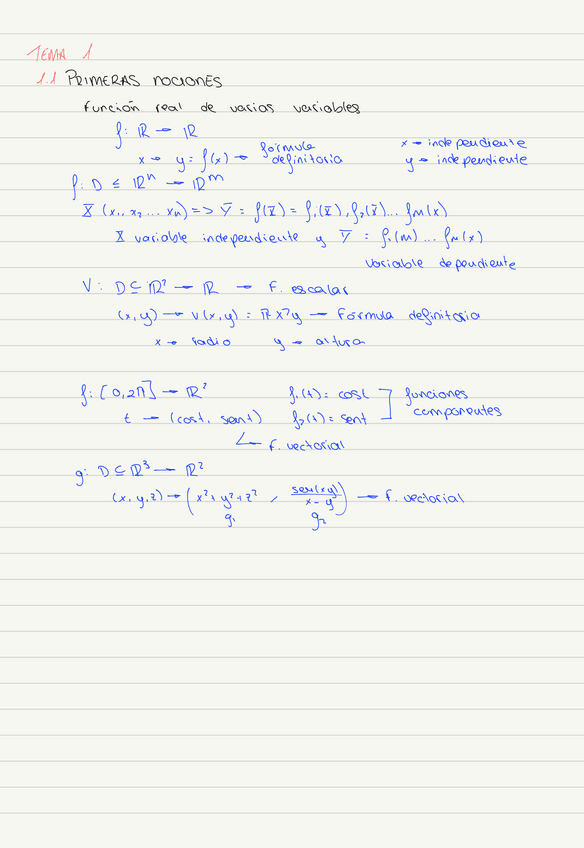 TEMA 1
1.1 PRIMERAS NOCIONES
Función real de varios variables
f: ℝ → ℝ
x → y = f(x) → fórmula definitoria
x → independiente
y → independiente
f: D ⊆ ℝⁿ → ℝᵐ
X̄ (x₁, x₂ ... xₙ) => Ȳ = f(x̄) = f₁(x̄), f₂(x̄) ... fm(x)
X variable independiente y Ȳ = f₁(m) ... fm(x)
variable dependiente
V: D ⊆ ℝ² → ℝ → F. escalar
(x, y) → v(x, y) = π x² y → Fórmula definitoria
x → radio y → altura
f: [0, 2π] → ℝ² f₁(t) = cost funciones
t → (cost, sent) f₂(t) = sent componentes
F. vectorial
g: D ⊆ ℝ³ → ℝ²
(x, y, z) → (x² + y² + z², sen(xy)/x-y) → F. vectorial
g₁ g₂